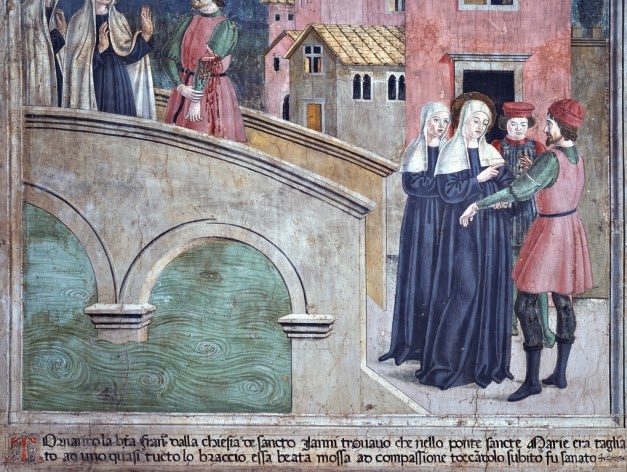 Tornanno la bta Franca dalla chiesia de sancto Ianni trovavo che nello ponte sancte Marie era taglia
to ad uno quasi tucto lo braccio essa beata mossa ad compassione toccandolo subito fu sanato